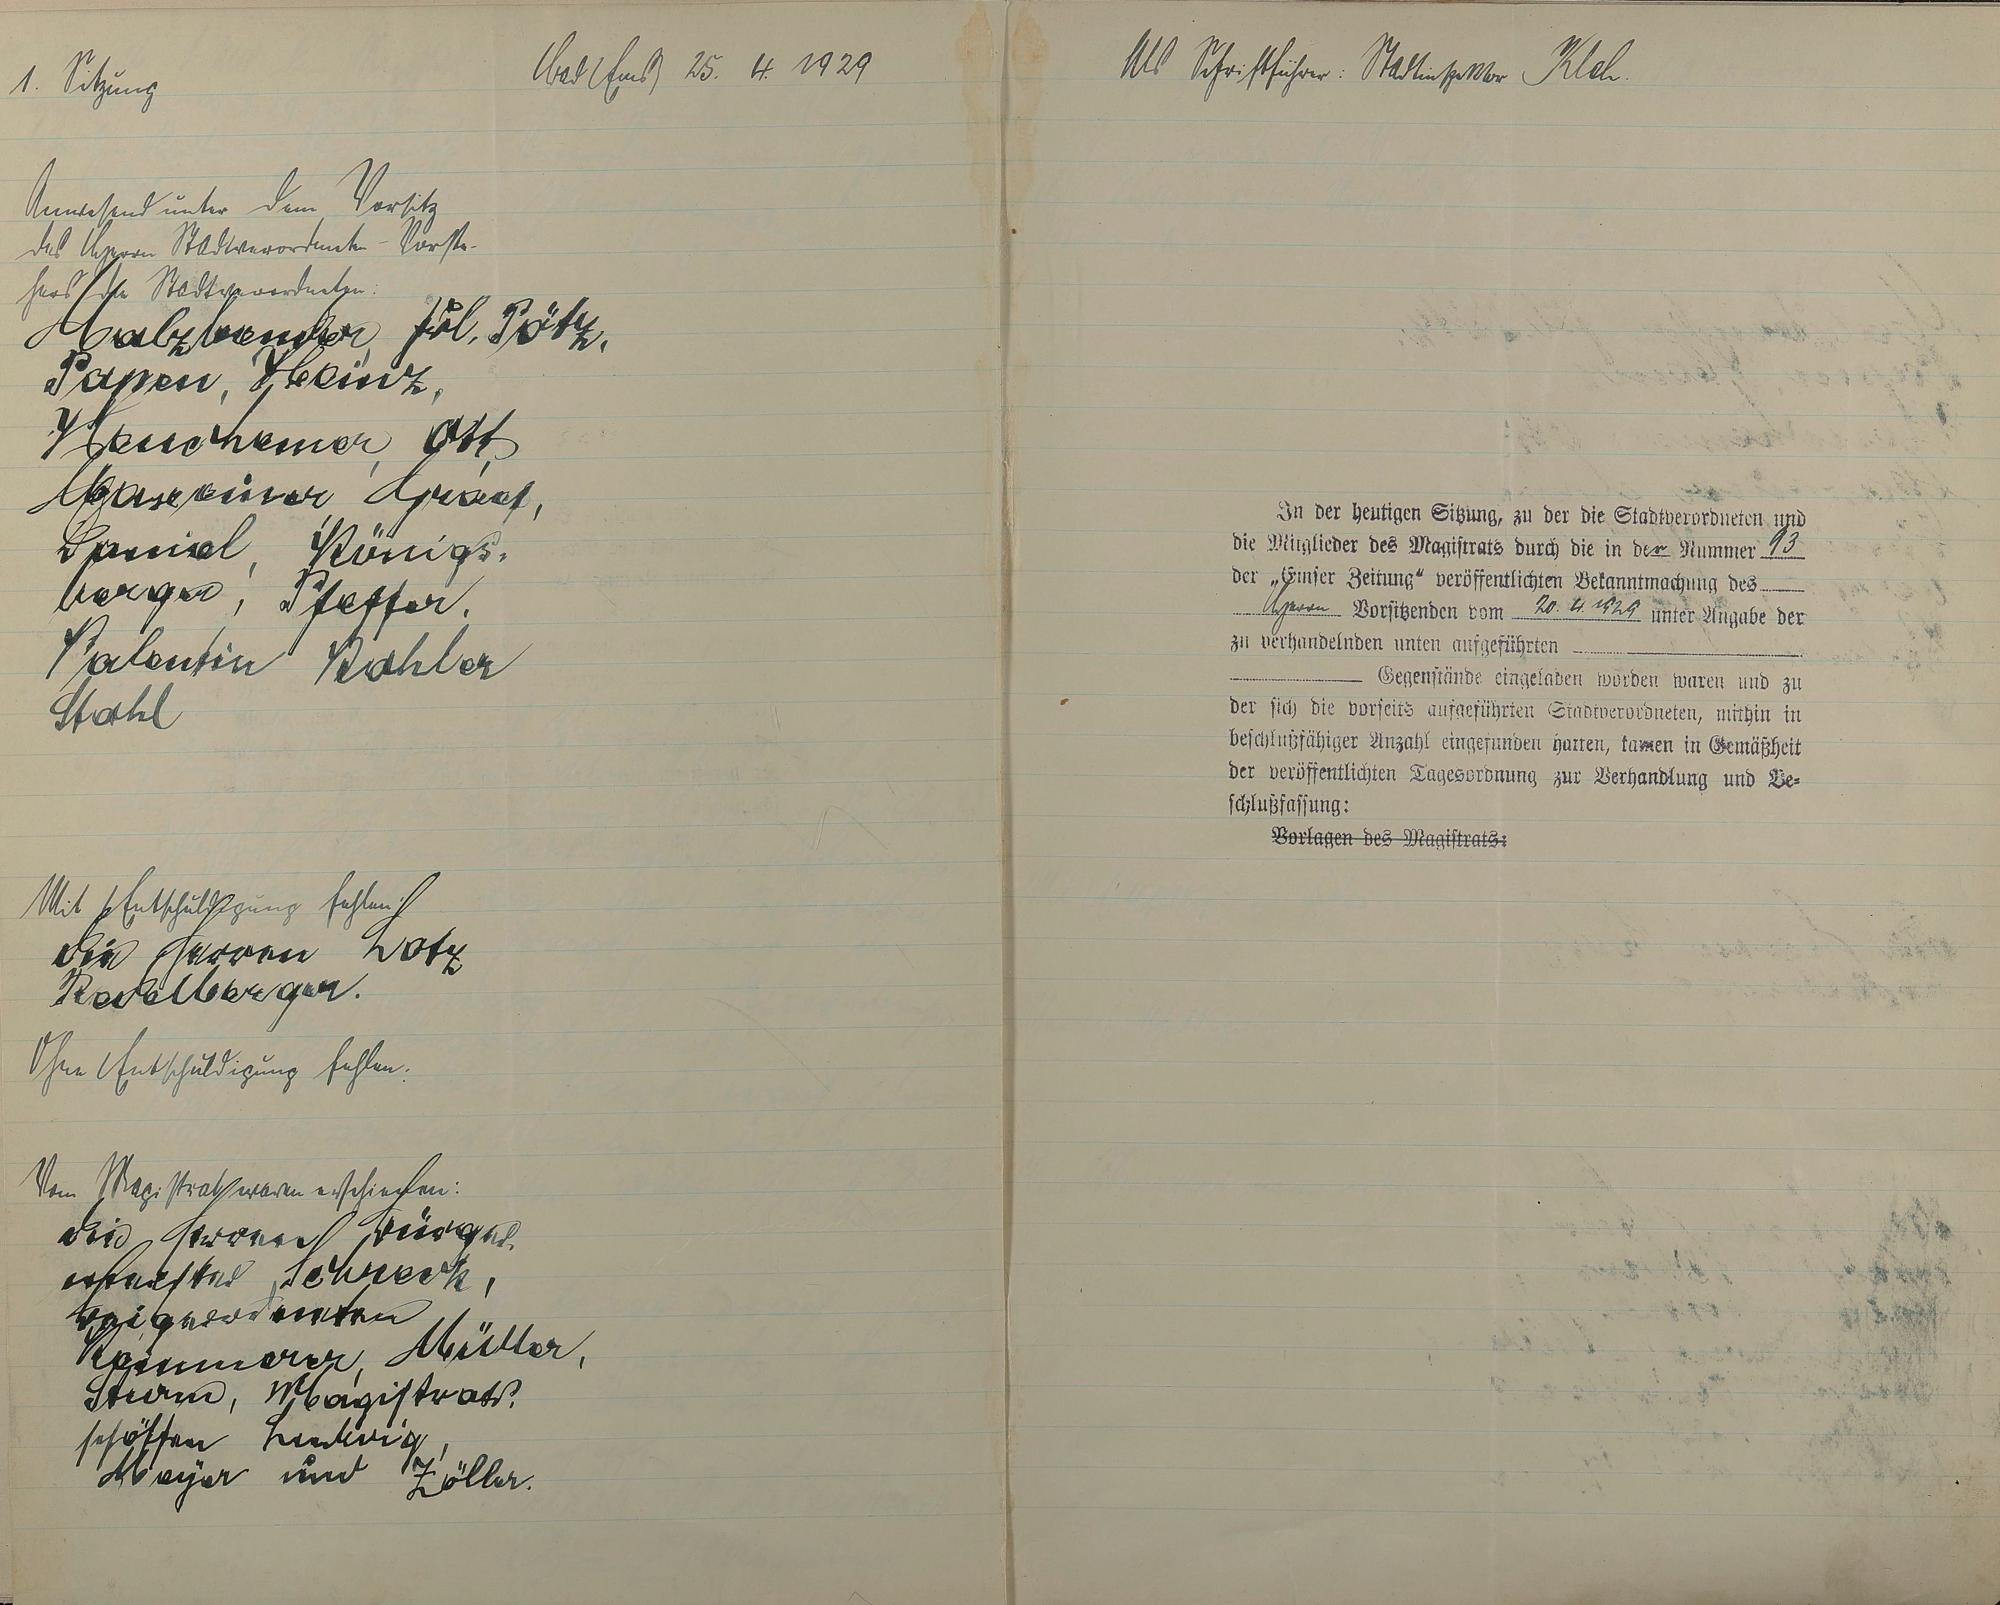 1. Sitzung
Bad Ems 25. 4. 1929
Anwesend unter dem Vorsitz
des Herrn Stadtverordneten-Vorste-
hers die Stadtverordneten:
Malzbender, Jul. Pötz,
Papen, Heinz,
Ott,
Graef,
Daniel, Königs-
berger, Pfeffer,
Valentin Kohler
Stahl
Mit Entschuldigung fehlen:
die Herren Lotz
Ohne Entschuldigung fehlen:
Vom Magistrat waren erschienen:
die Herren Bürger-
meister Schreck,
Beigeordneten
Kemmerer, Müller,
Sturm, Magistrats-
schöffen Ludwig,
Meyer und Zöller.
Als Schriftführer: Stadtinspektor
In der heutigen Sitzung, zu der die Stadtverordneten und
die Mitglieder des Magistrats durch die in der Nummer 93
der „Emser Zeitung“ veröffentlichten Bekanntmachung des
Herrn Vorsitzenden vom 20. 4. 1929 unter Angabe der
zu verhandelnden unten aufgeführten
Gegenstände eingeladen worden waren und zu
der sich die vorseits aufgeführten Stadtverordneten, mithin in
beschlußfähiger Anzahl eingefunden hatten, kamen in Gemäßheit
der veröffentlichten Tagesordnung zur Verhandlung und Be-
schlußfassung:
Vorlagen des Magistrats: